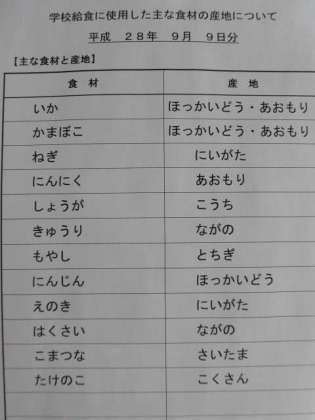 学校給食に使用した主な食材の産地について
平成 28年 9月 9日分
【主な食材と産地】
食 材 産 地
いか ほっかいどう・あおもり
かまぼこ ほっかいどう・あおもり
ねぎ にいがた
にんにく あおもり
しょうが こうち
きゅうり ながの
もやし とちぎ
にんじん ほっかいどう
えのき にいがた
はくさい ながの
こまつな さいたま
たけのこ こくさん